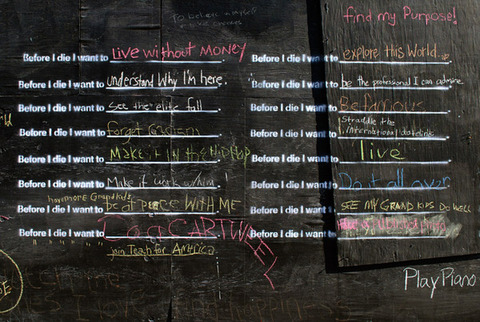 find my Purpose!
Before I die I want to Live without MONEY
Before I die I want to understand Why I'm here.
Before I die I want to see the elite fall
Before I die I want to
Before I die I want to Make it in the HipHop
Before I die I want to Make it work w/him!
have more Grand Kids
Before I die I want to be at peace WITH ME
Before I die I want to CARTWHEEL
join Teach for America
Before I die I want to explore this World.
Before I die I want to be the professional I can
Before I die I want to Be famous
Before I die I want to Straddle the International dateline
Before I die I want to live
Before I die I want to Do it all over
Before I die I want to SEE MY GRAND KIDS DO WELL
Before I die I want to
Play Piano